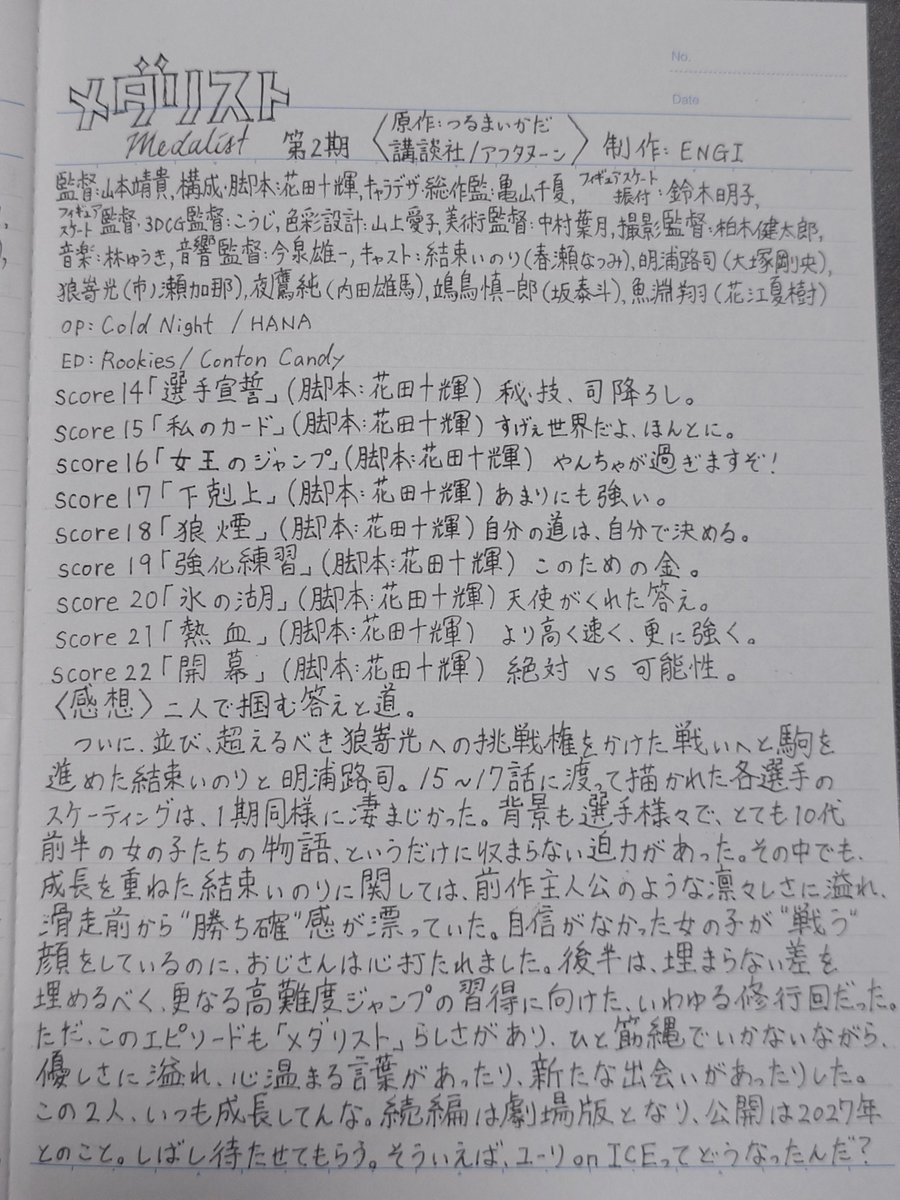 No.
Date
メダリスト
Medalist 第2期 〈原作:つるまいかだ 講談社/アフタヌーン〉 制作:ENGI
監督:山本靖貴,構成・脚本:花田十輝,キャラデザ・総作監:亀山千夏,フィギュアスケート振付:鈴木明子,
フィギュアスケート監督・3DCG監督:こうじ,色彩設計:山上愛子,美術監督:中村葉月,撮影監督:柏木健太郎,
音楽:林ゆうき,音響監督:今泉雄一,キャスト:結束いのり(春瀬なつみ),明浦路司(大塚剛央),
狼嵜光(市ノ瀬加那),夜鷹純(内田雄馬),鴗鳥慎一郎(坂泰斗),魚淵翔(花江夏樹)
OP:Cold Night /HANA
ED:Rookies/Conton Candy
score14「選手宣誓」(脚本:花田十輝) 秘技、司降ろし。
score15「私のカード」(脚本:花田十輝) すげぇ世界だよ、ほんとに。
score16「女王のジャンプ」(脚本:花田十輝) やんちゃが過ぎますぞ!
score17「下剋上」(脚本:花田十輝) あまりにも強い。
score18「狼煙」(脚本:花田十輝) 自分の道は、自分で決める。
score 19「強化練習」(脚本:花田十輝) このための金。
score 20「氷の湖月」(脚本:花田十輝) 天使がくれた答え。
score 21「熱血」(脚本:花田十輝) より高く速く、更に強く。
score 22「開幕」(脚本:花田十輝) 絶対 vs 可能性。
〈感想〉二人で掴む答えと道。
ついに、並び、超えるべき狼嵜光への挑戦権をかけた戦いへと駒を
進めた結束いのりと明浦路司。15~17話に渡って描かれた各選手の
スケーティングは、1期同様に凄まじかった。背景も選手様々で、とても10代
前半の女の子たちの物語、というだけに収まらない迫力があった。その中でも、
成長を重ねた結束いのりに関しては、前作主人公のような凛々しさに溢れ、
滑走前から"勝ち確"感が漂っていた。自信がなかった女の子が"戦う"
顔をしているのに、おじさんは心打たれました。後半は、埋まらない差を
埋めるべく、更なる高難度ジャンプの習得に向けた、いわゆる修行回だった。
ただ、このエピソードも「メダリスト」らしさがあり、ひと筋縄でいかないながら、
優しさに溢れ、心温まる言葉があったり、新たな出会いがあったりした。
この2人、いつも成長してんな。続編は劇場版となり、公開は2027年
とのこと。しばし待たせてもらう。そういえば、ユーリ on ICEってどうなったんだ?